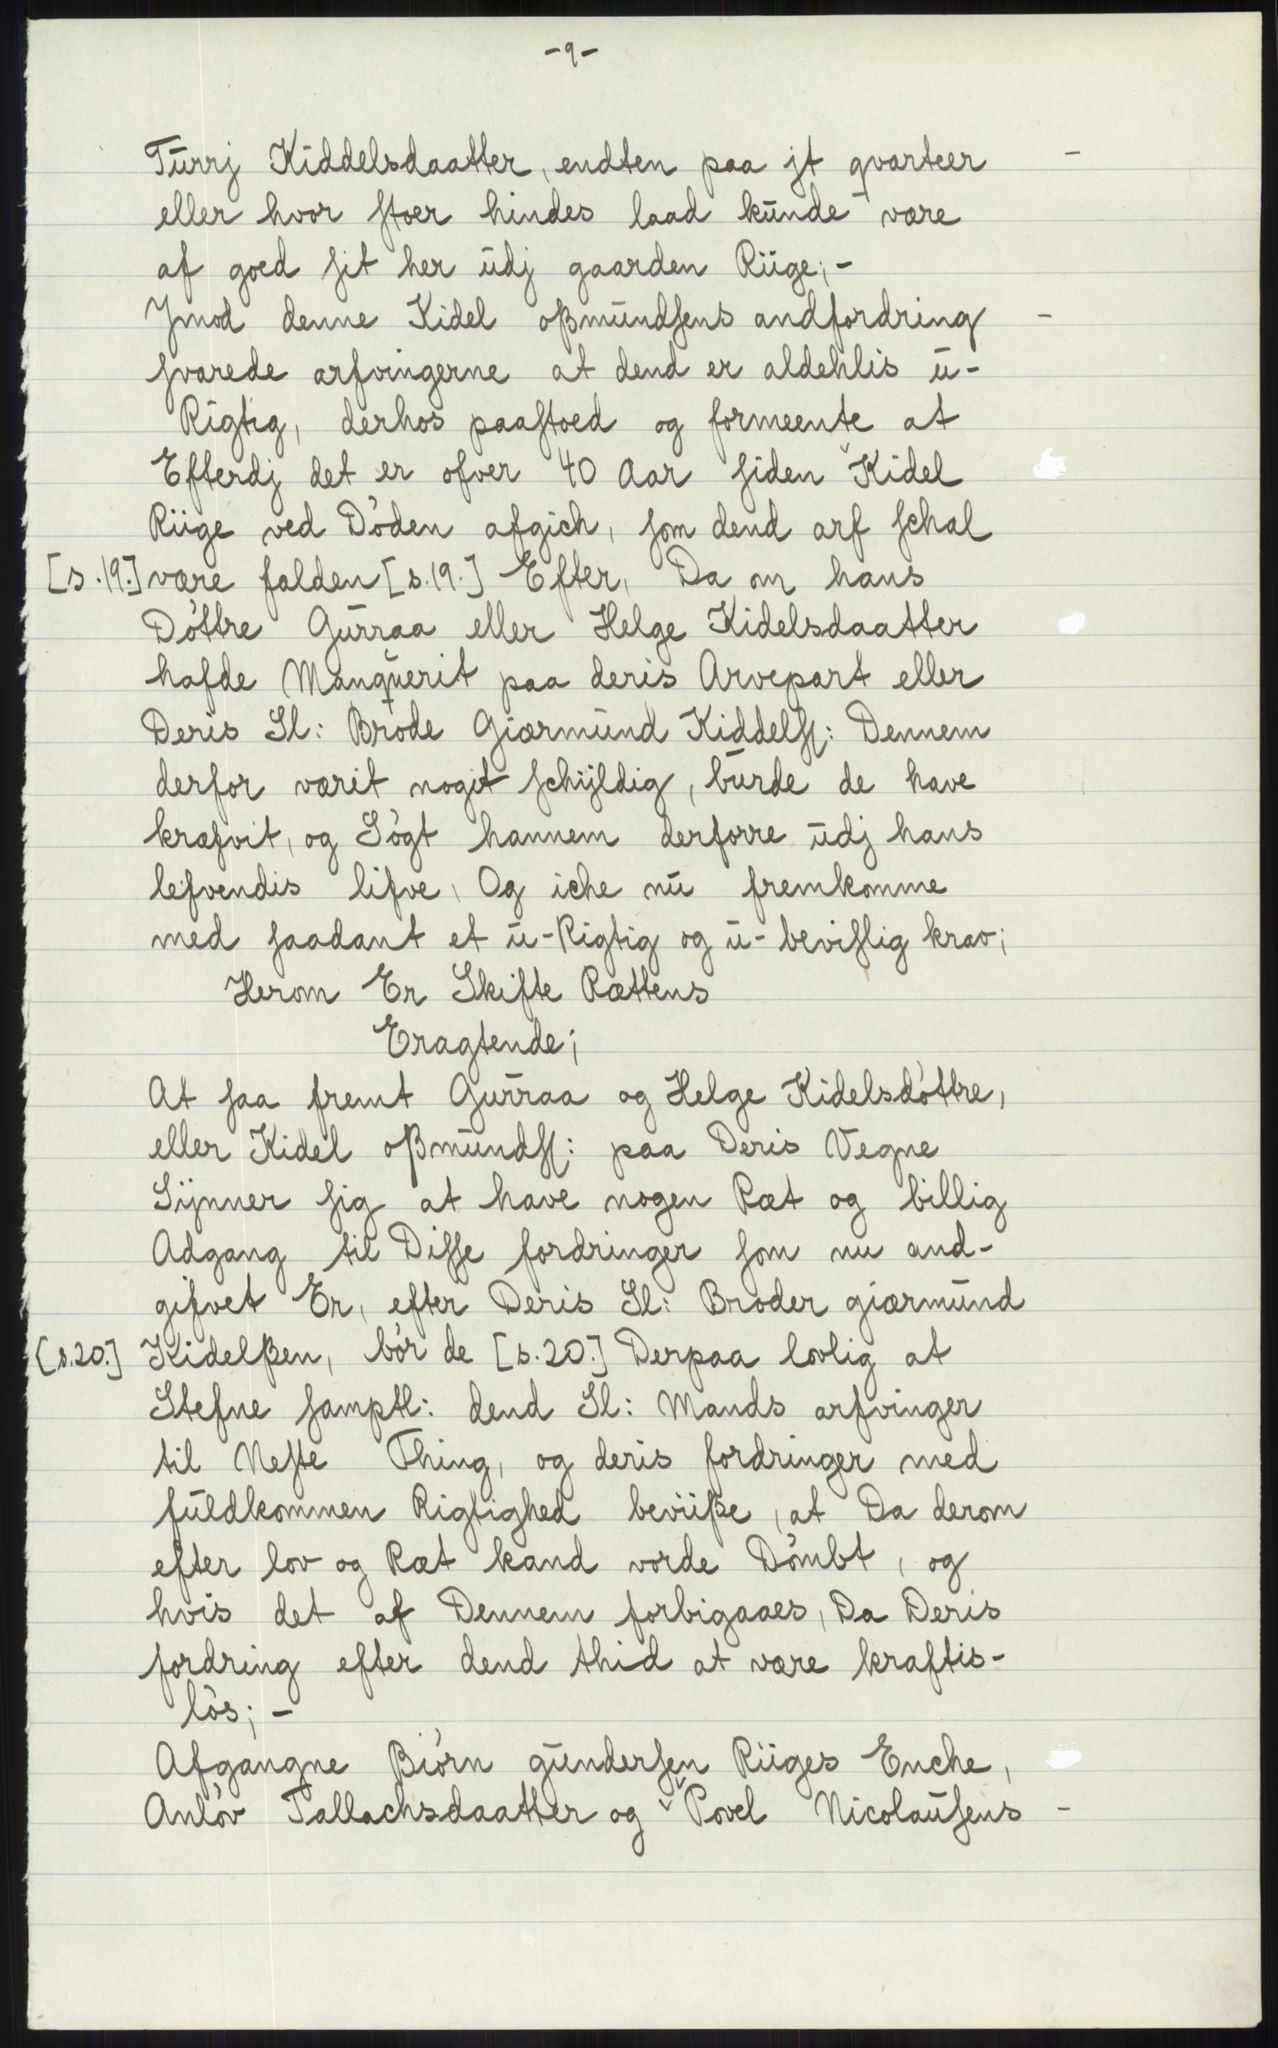 -9-
Turrj Kiddelsdaatter, endten paa jt qvarteer -
eller hvor stoer hindes laad kunde være
af goed sit her udj gaarden Riige; -
Jmod denne Kidel oßmundsens andfordring -
svarede arfvingerne at dend er aldehlis u-
Rigtig, derhos paastoed og formeente at
Efterdj det er ofver 40 Aar siden Kidel
Riige ved Döden afgich, som dend arf schal
[s.19.] være falden [s.19.] Efter, Da om hans
Döttre Gurraa eller Helge Kidelsdaatter
hafde Manqverit paa deris Arvepart eller
Deris Sl: Brode Giærmund Kiddelss: Dennem
derfor værit nogit schÿldig, burde de have
kræfvit, og Sögt hannem derforre udj hans
lefvendis lifve, Og iche nu fremkomme
med saadant et u-Rigtig og u-bevislig krav;
Herom Er Skifte Rættens
Eragtende;
At saa fremt Gurraa og Helge Kidelsdöttre,
eller Kidel oßmundss: paa Deris Vegne
Sÿnner sig at have nogen Ræt og billig
Adgang til Disse fordringer som nu and-
gifvet Er, efter Deris Sl: Broder giærmund
[s.20.] Kidelßen, bör de [s.20.] Derpaa lovlig at
Stefne samptl: dend Sl: Mands arfvinger
til Neste Thing, og deris fordringer med
fuldkommen Rigtighed beviiße, at Da derom
efter lov og Ræt kand vorde Dömbt, og
hvis det af Dennem forbigaaes, Da Deris
fordring efter dend thid at være kraftis-
lös; -
Afgangne Biörn gundersen Riiges Enche,
Anlöv Tallachsdaatter og Povel Nicolausens -